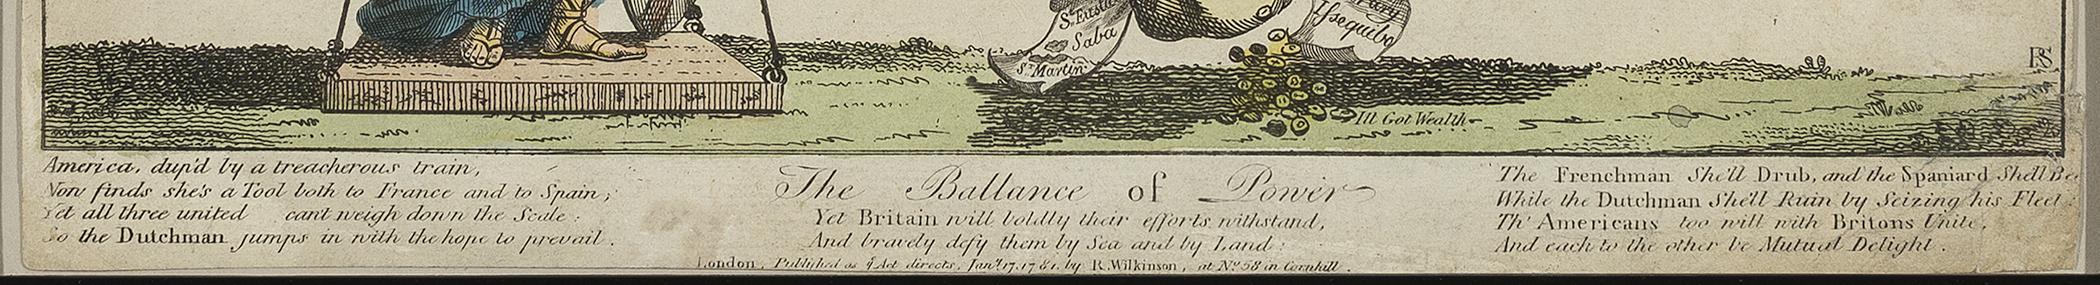 St. Eusta
Saba
St. Martin
Issequibo
RS
Ill Got Wealth
America, dup'd by a treacherous train,
Now finds she's a Tool both to France and to Spain;
Yet all three united can't weigh down the Scale:
So the Dutchman jumps in with the hope to prevail.
The Ballance of Power
Yet Britain will boldly their efforts withstand,
And bravely defy them by Sea and by Land:
The Frenchman She'll Drub, and the Spaniard She'll Be
While the Dutchman She'll Ruin by Seizing his Fleet:
Th' Americans too will with Britons Unite,
And each to the other be Mutual Delight.
London, Published as ye Act directs, Jany. 17, 1781, by R. Wilkinson, at No. 58 in Cornhill.